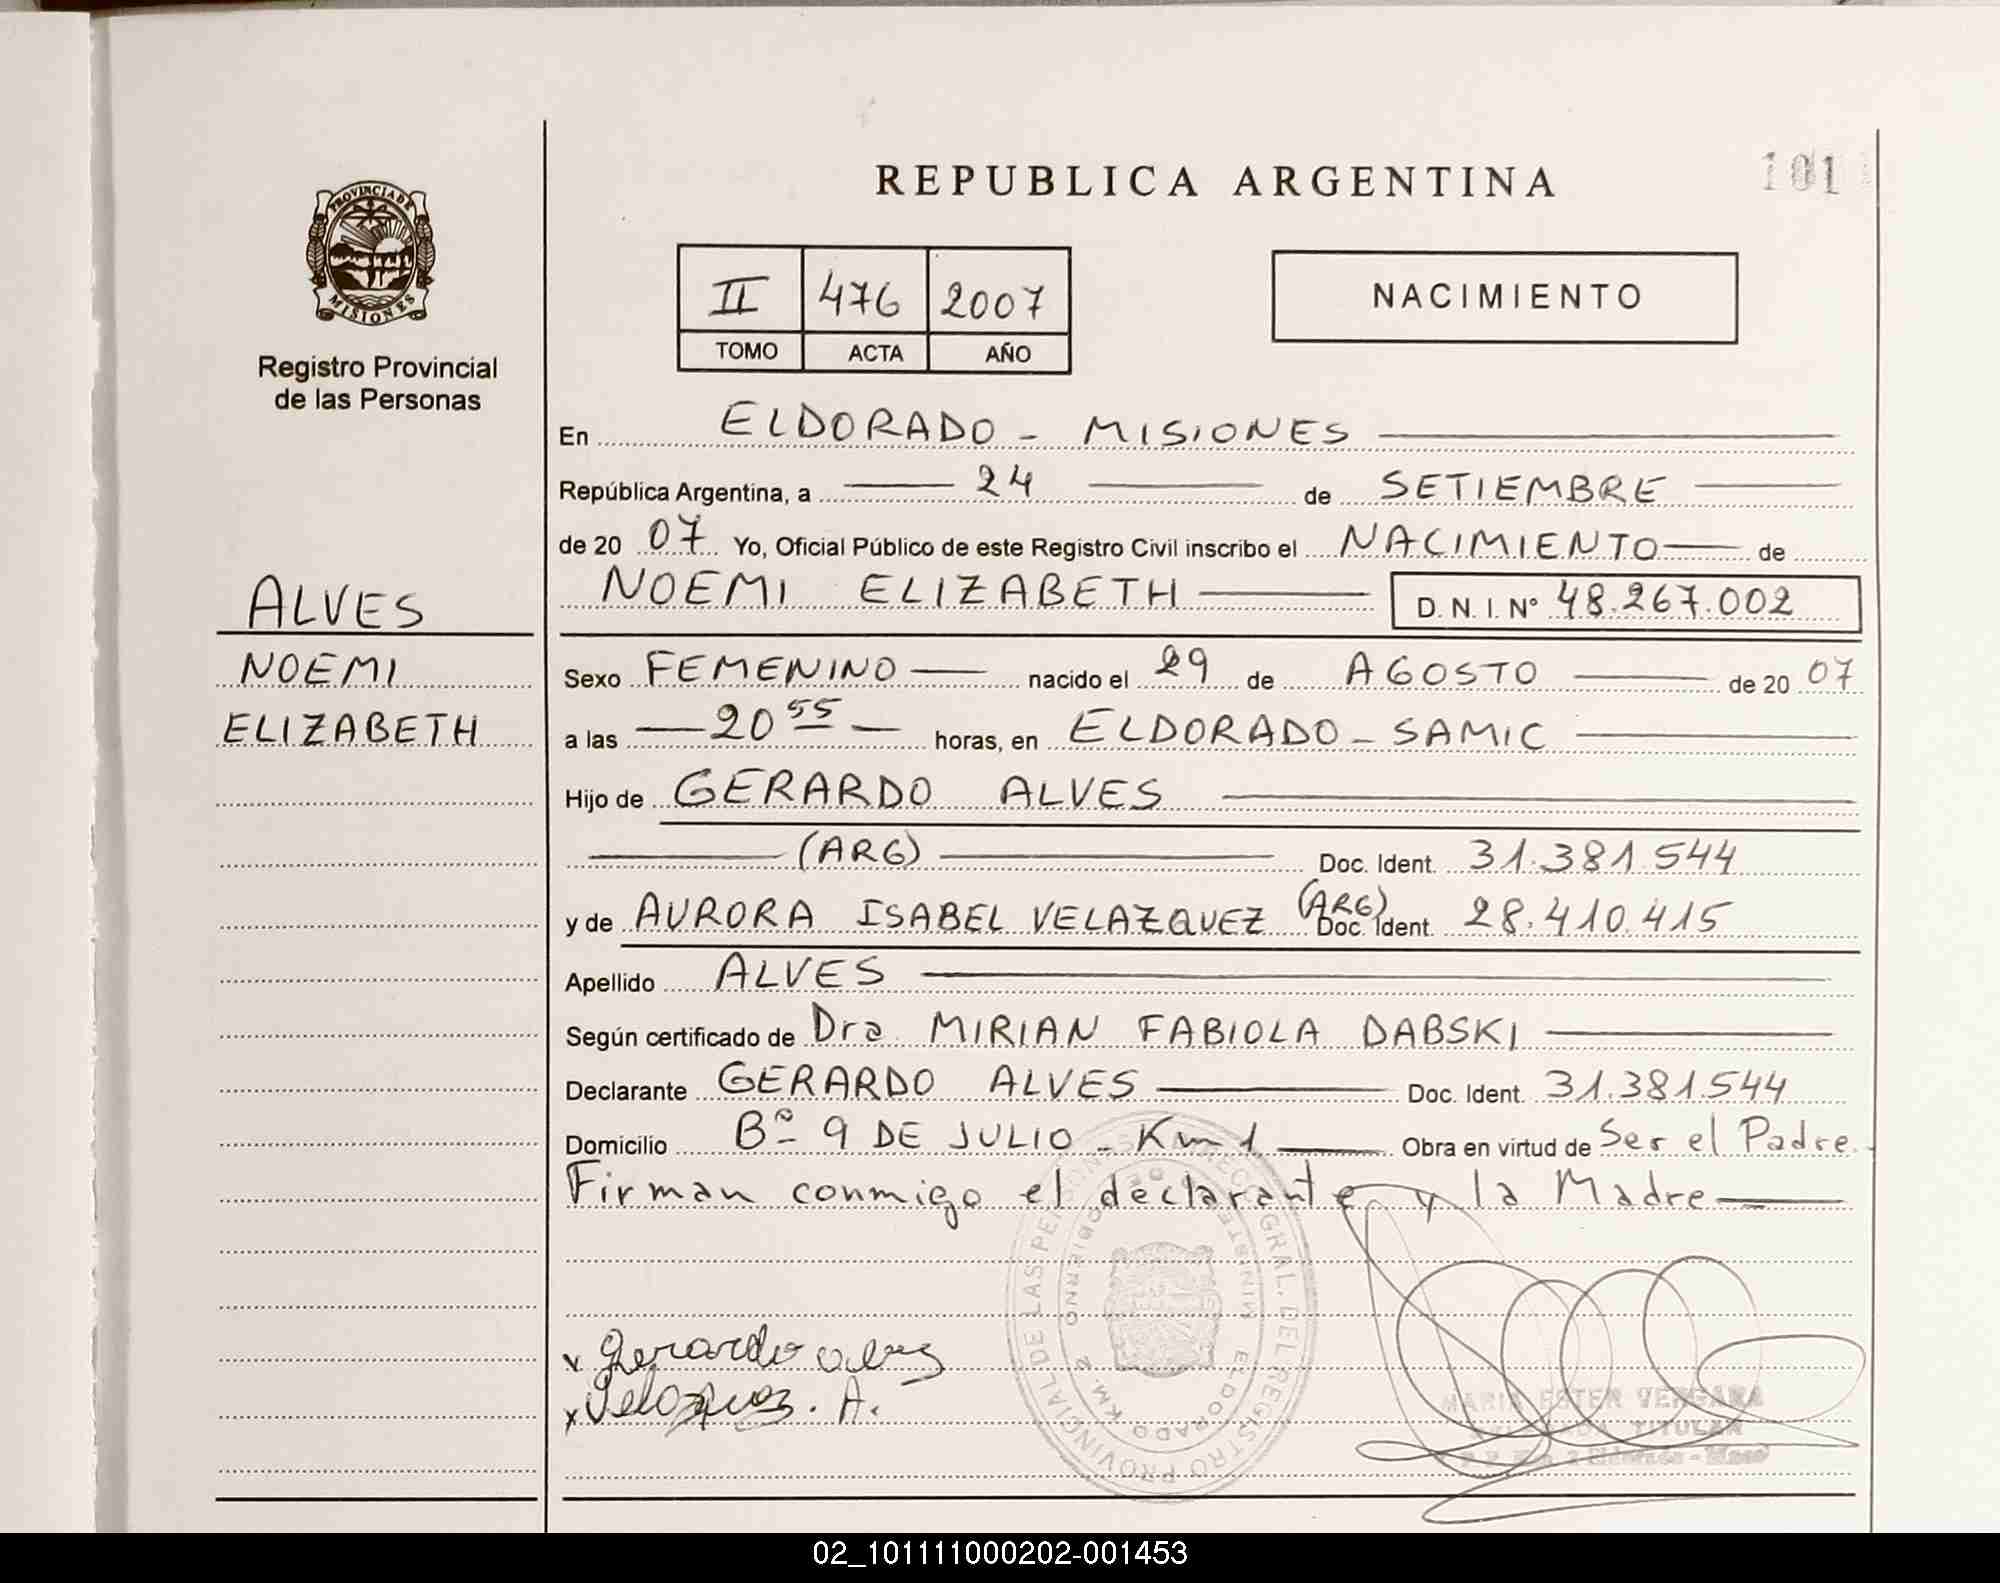 REPUBLICA ARGENTINA
101
PROVINCIA DE MISIONES
Registro Provincial
de las Personas
II 476 2007
TOMO ACTA AÑO
NACIMIENTO
En ELDORADO - MISIONES
República Argentina, a 24 de SETIEMBRE
de 20 07 Yo, Oficial Público de este Registro Civil inscribo el NACIMIENTO de
NOEMI ELIZABETH D. N. I. Nº 48.267.002
ALVES
NOEMI
ELIZABETH
Sexo FEMENINO nacido el 29 de AGOSTO de 20 07
a las 20 55 horas, en ELDORADO - SAMIC
Hijo de GERARDO ALVES
(ARG) Doc. Ident. 31.381.544
y de AURORA ISABEL VELAZQUEZ (ARG) Doc. Ident. 28.410.415
Apellido ALVES
Según certificado de Dra. MIRIAN FABIOLA DABSKI
Declarante GERARDO ALVES Doc. Ident. 31.381.544
Domicilio Bº 9 DE JULIO - Km 1 Obra en virtud de Ser el Padre.
Firman conmigo el declarante y la Madre
x Gerardo alves
x Velazquez. A.
DIREC. GRAL. DEL REGISTRO PROVINCIAL DE LAS PERSONAS
MINISTERIO DE GOBIERNO
ELDORADO KM. 2
MARIA ESTER VERGARA
TITULAR
02_101111000202-001453